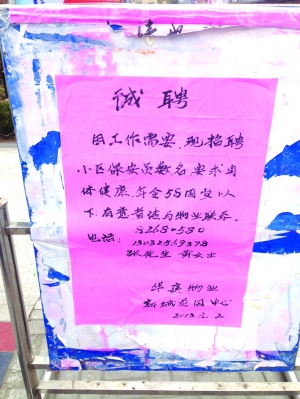 诚聘
因工作需要,现招聘
小区保安员数名,要求身
体健康,年令55周岁以
下,有意者请与物业联系.
82680580
电话: 13032569378
张先生 黄女士
华庭物业
新城花园中心